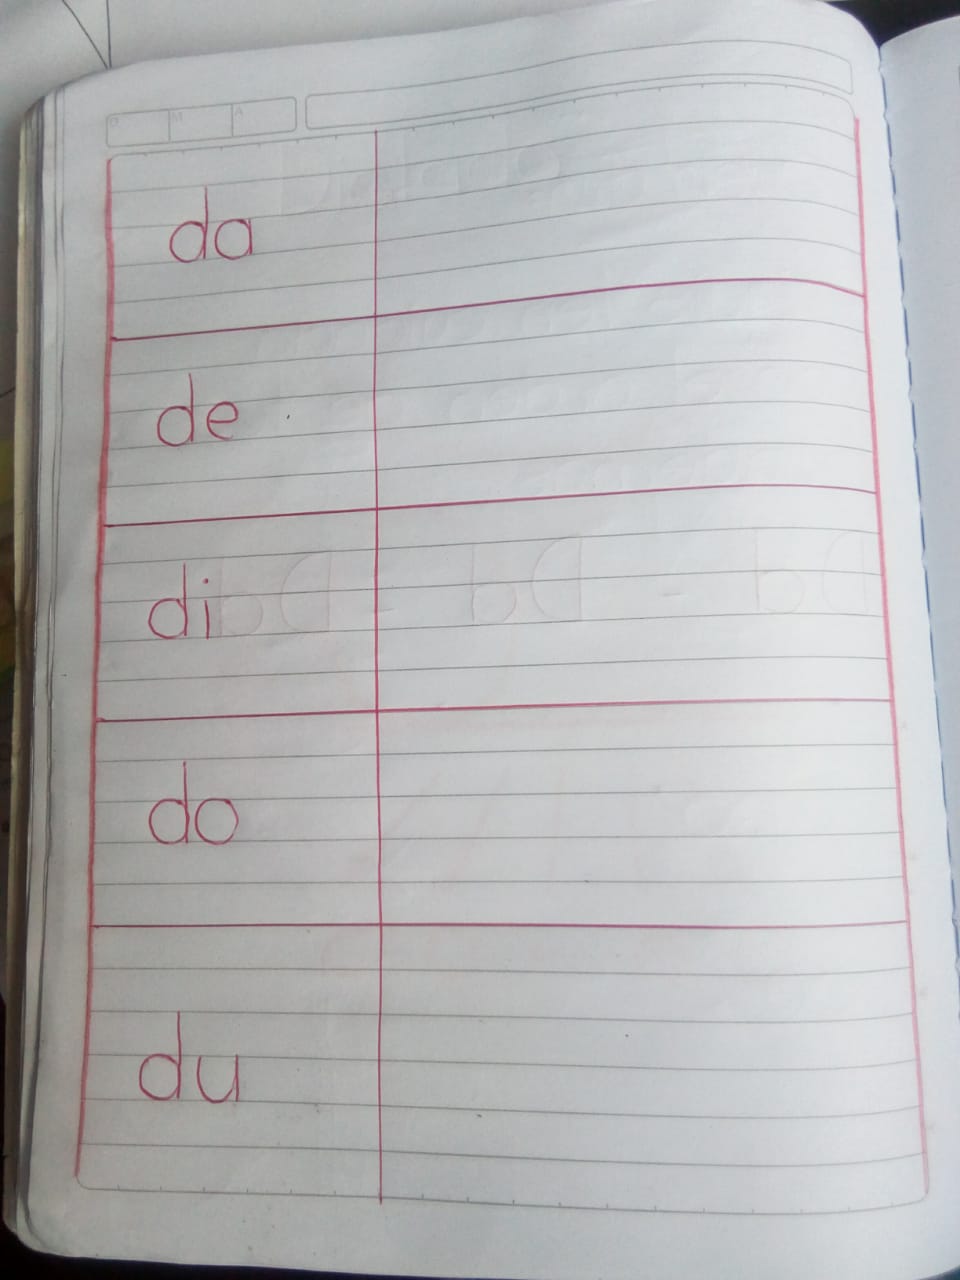 da
de
di
do
du